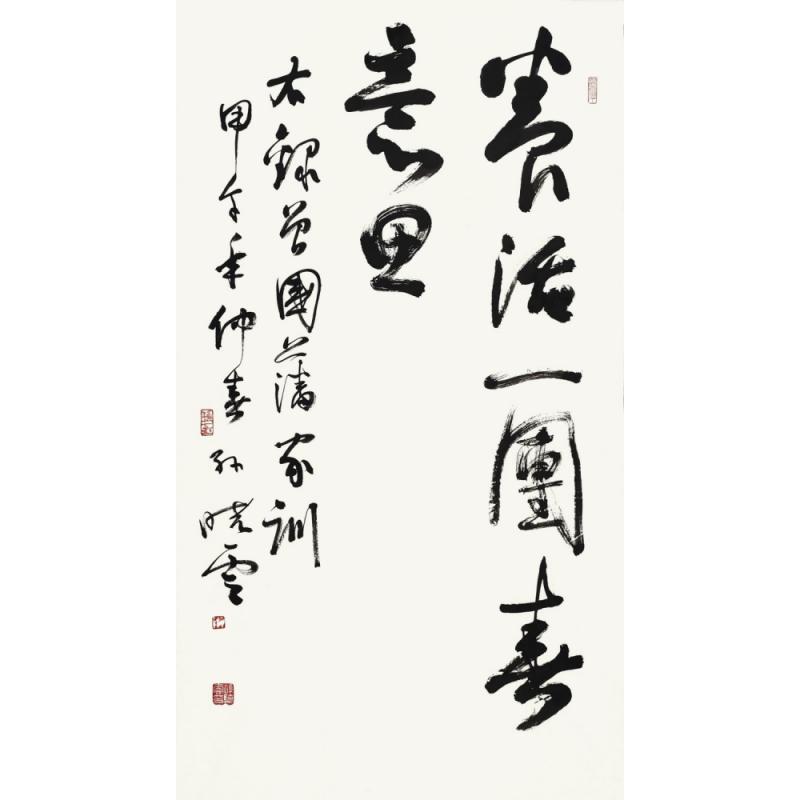 養活一團春
意思
右錄曾國藩家訓
甲午年仲春孫曉雲